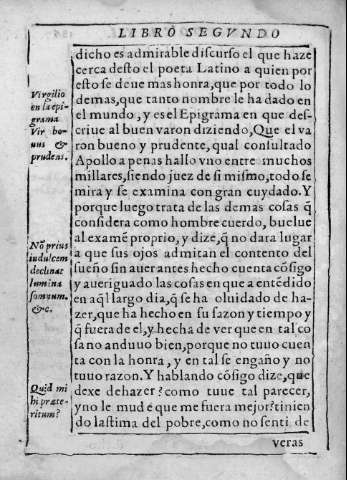 LIBRO SEGVNDO
dicho es admirable discurso el que haze
cerca desto el poeta Latino a quien por
esto se deue mas honra, que por todo lo
demas, que tanto nombre le ha dado en
el mundo, y es el Epigrama en que des-
criue al buen varon diziendo, Que el va
ron bueno y prudente, qual consultado
Apollo a penas hallo vno entre muchos
millares, siendo juez de si mismo, todo se
mira y se examina con gran cuydado. Y
porque luego trata de las demas cosas q̃
considera como hombre cuerdo, buelue
al examẽ proprio, y dize, q̃ no dara lugar
a que sus ojos admitan el contento del
sueño sin auer antes hecho cuenta cõsigo
y aueriguado las cosas en que a entẽdido
en aq̃l largo dia, q̃ se ha oluidado de ha-
zer, que ha hecho en su sazon y tiempo y
q̃ fuera de el, y hecha de ver que en tal co
sa no anduuo bien, porque no tuuo cuen
ta con la honra, y en tal se engaño y no
tuuo razon. Y hablando cõsigo dize, que
dexe de hazer? como tuue tal parecer,
y no le mude que me fuera mejor? tinien
do lastima del pobre, como no senti de
veras
Virgilio
en la epi-
grama
Vir bo-
nus &
prudens.
Nõ prius
in dulcem
declinat
lumina
somnum.
&c.
Quid mi
hi præte-
ritum?